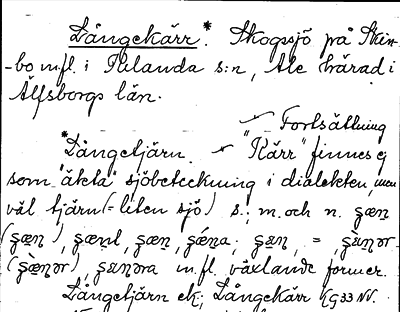 Långekärr.* Skogssjö på Skår-
-bo m.fl. i Skalanda s:n, Ale härad i
Älfsborgs län.
Fortsättning
*Långetjärn. "Kärr" finnes ej
som "äkta" sjöbeteckning i dialekten, men
väl tjärn (= liten sjö) s.; m. och n. ʂæɳ
(ʂæɳ), ʂæɳl, ʂæɳ, ʂǽɳa; ʂɛɳ, =, ʂɛ̀ɳər
(ʂæ̀ɳər), ʂɛɳəra m.fl. växlande former.
Långetjärn ek; Långekärr KG33 NV.